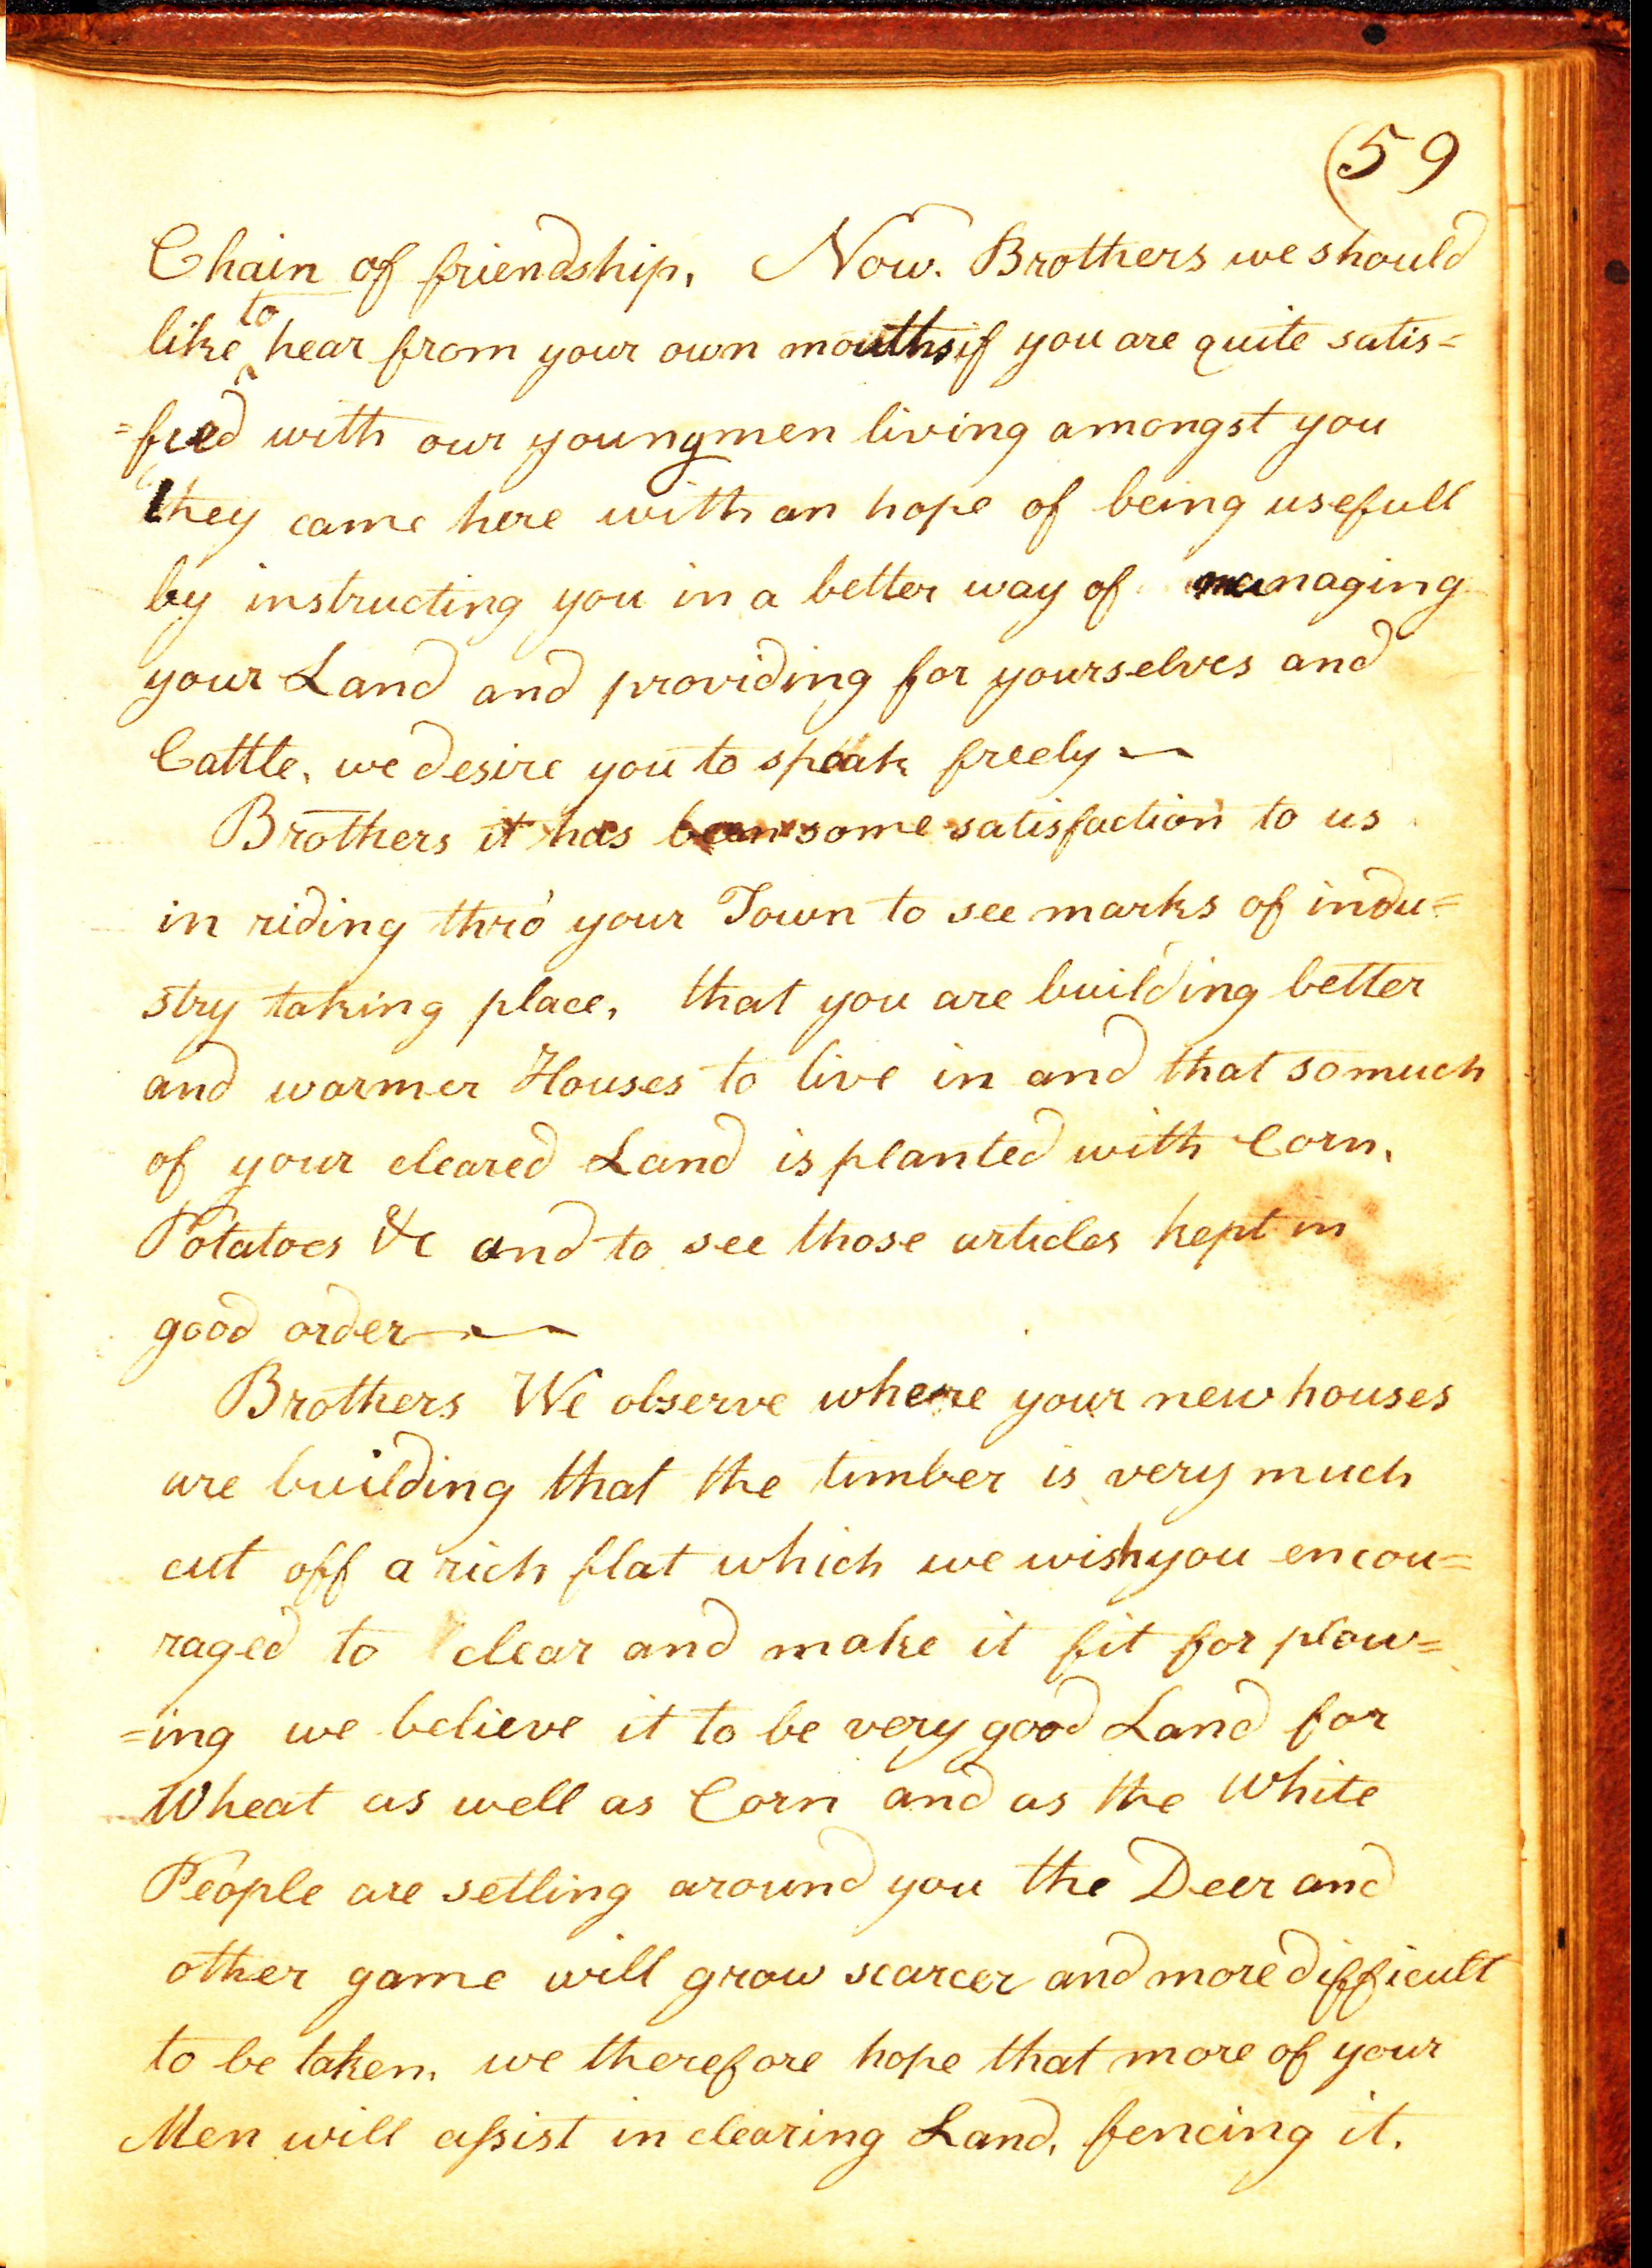 (59
Chain of friendship, Now. Brothers we should
to
like hear from your own mouths if you are quite satis=
=fied with our young men living amongst you
they came here with an hope of being usefull
by instructing you in a better way of managing
your Land and providing for yourselves and
Cattle, we desire you to speak freely —
Brothers it has been some satisfaction to us
in riding thro' your Town to see marks of indu=
stry taking place, that you are building better
and warmer Houses to live in and that so much
of your cleared Land is planted with Corn,
Potatoes &c and to see those articles kept in
good order —
Brothers We observe where your new houses
are building that the timber is very much
cut off a rich flat which we wish you encou=
raged to clear and make it fit for plow=
=ing we believe it to be very good Land for
Wheat as well as Corn and as the White
People are setling around you the Deer and
other game will grow scarcer and more difficult
to be taken, we therefore hope that more of your
Men will assist in clearing Land, fencing it,